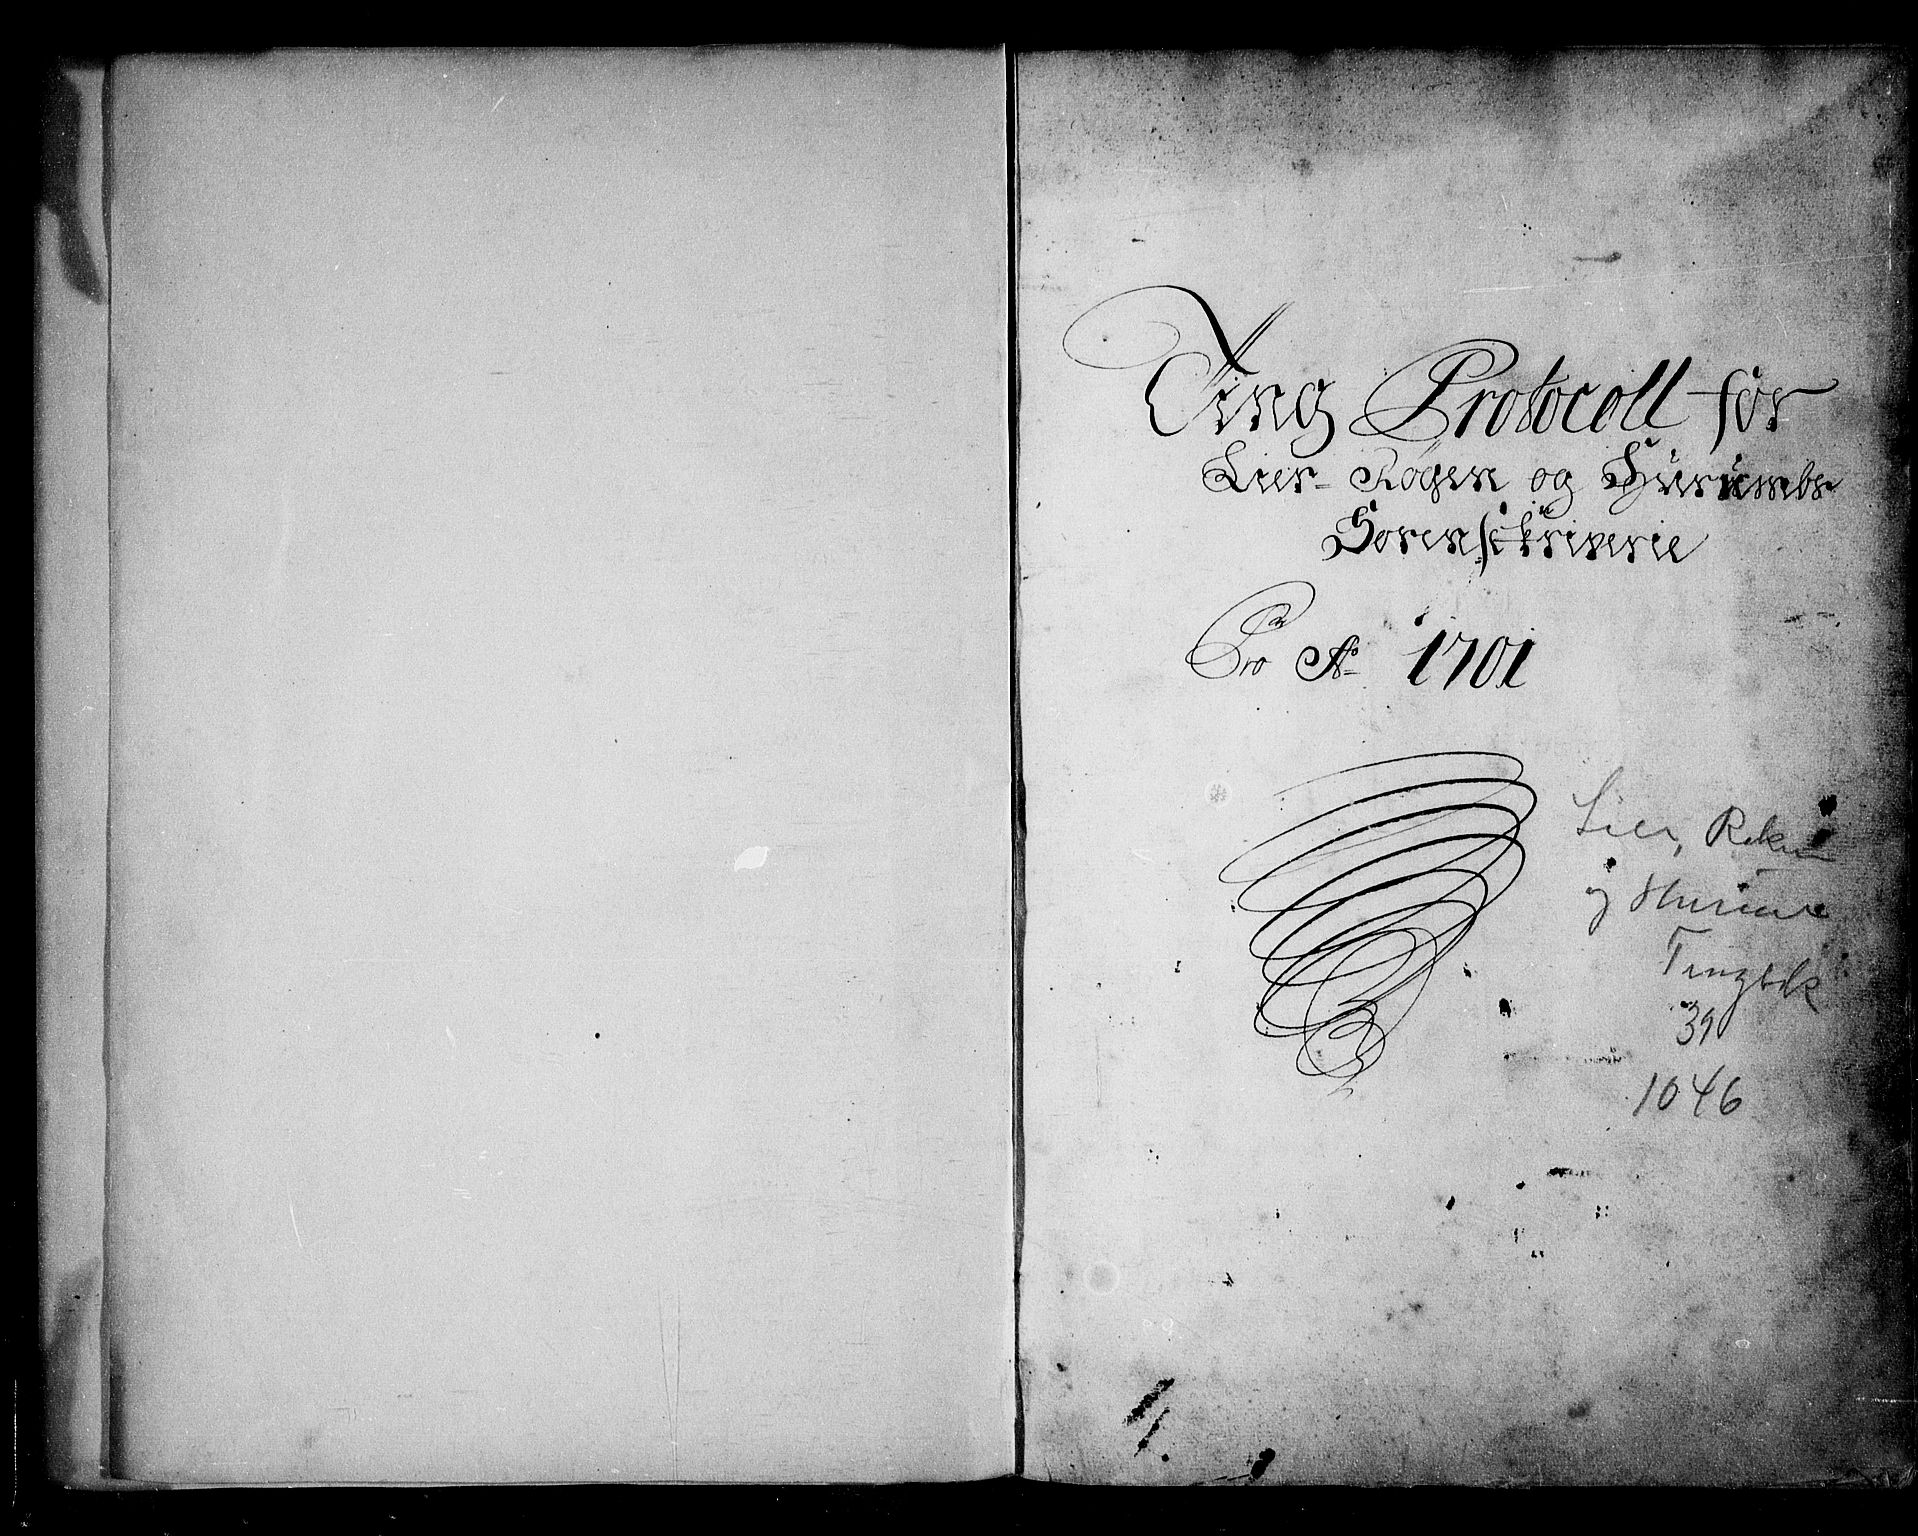 Ting Protocoll for
Lier- Rogen og Hürümbs
Sorenschriverie
Pro Ao 1701
Lier, Røken
og Hurum
Tingbok
39
1046